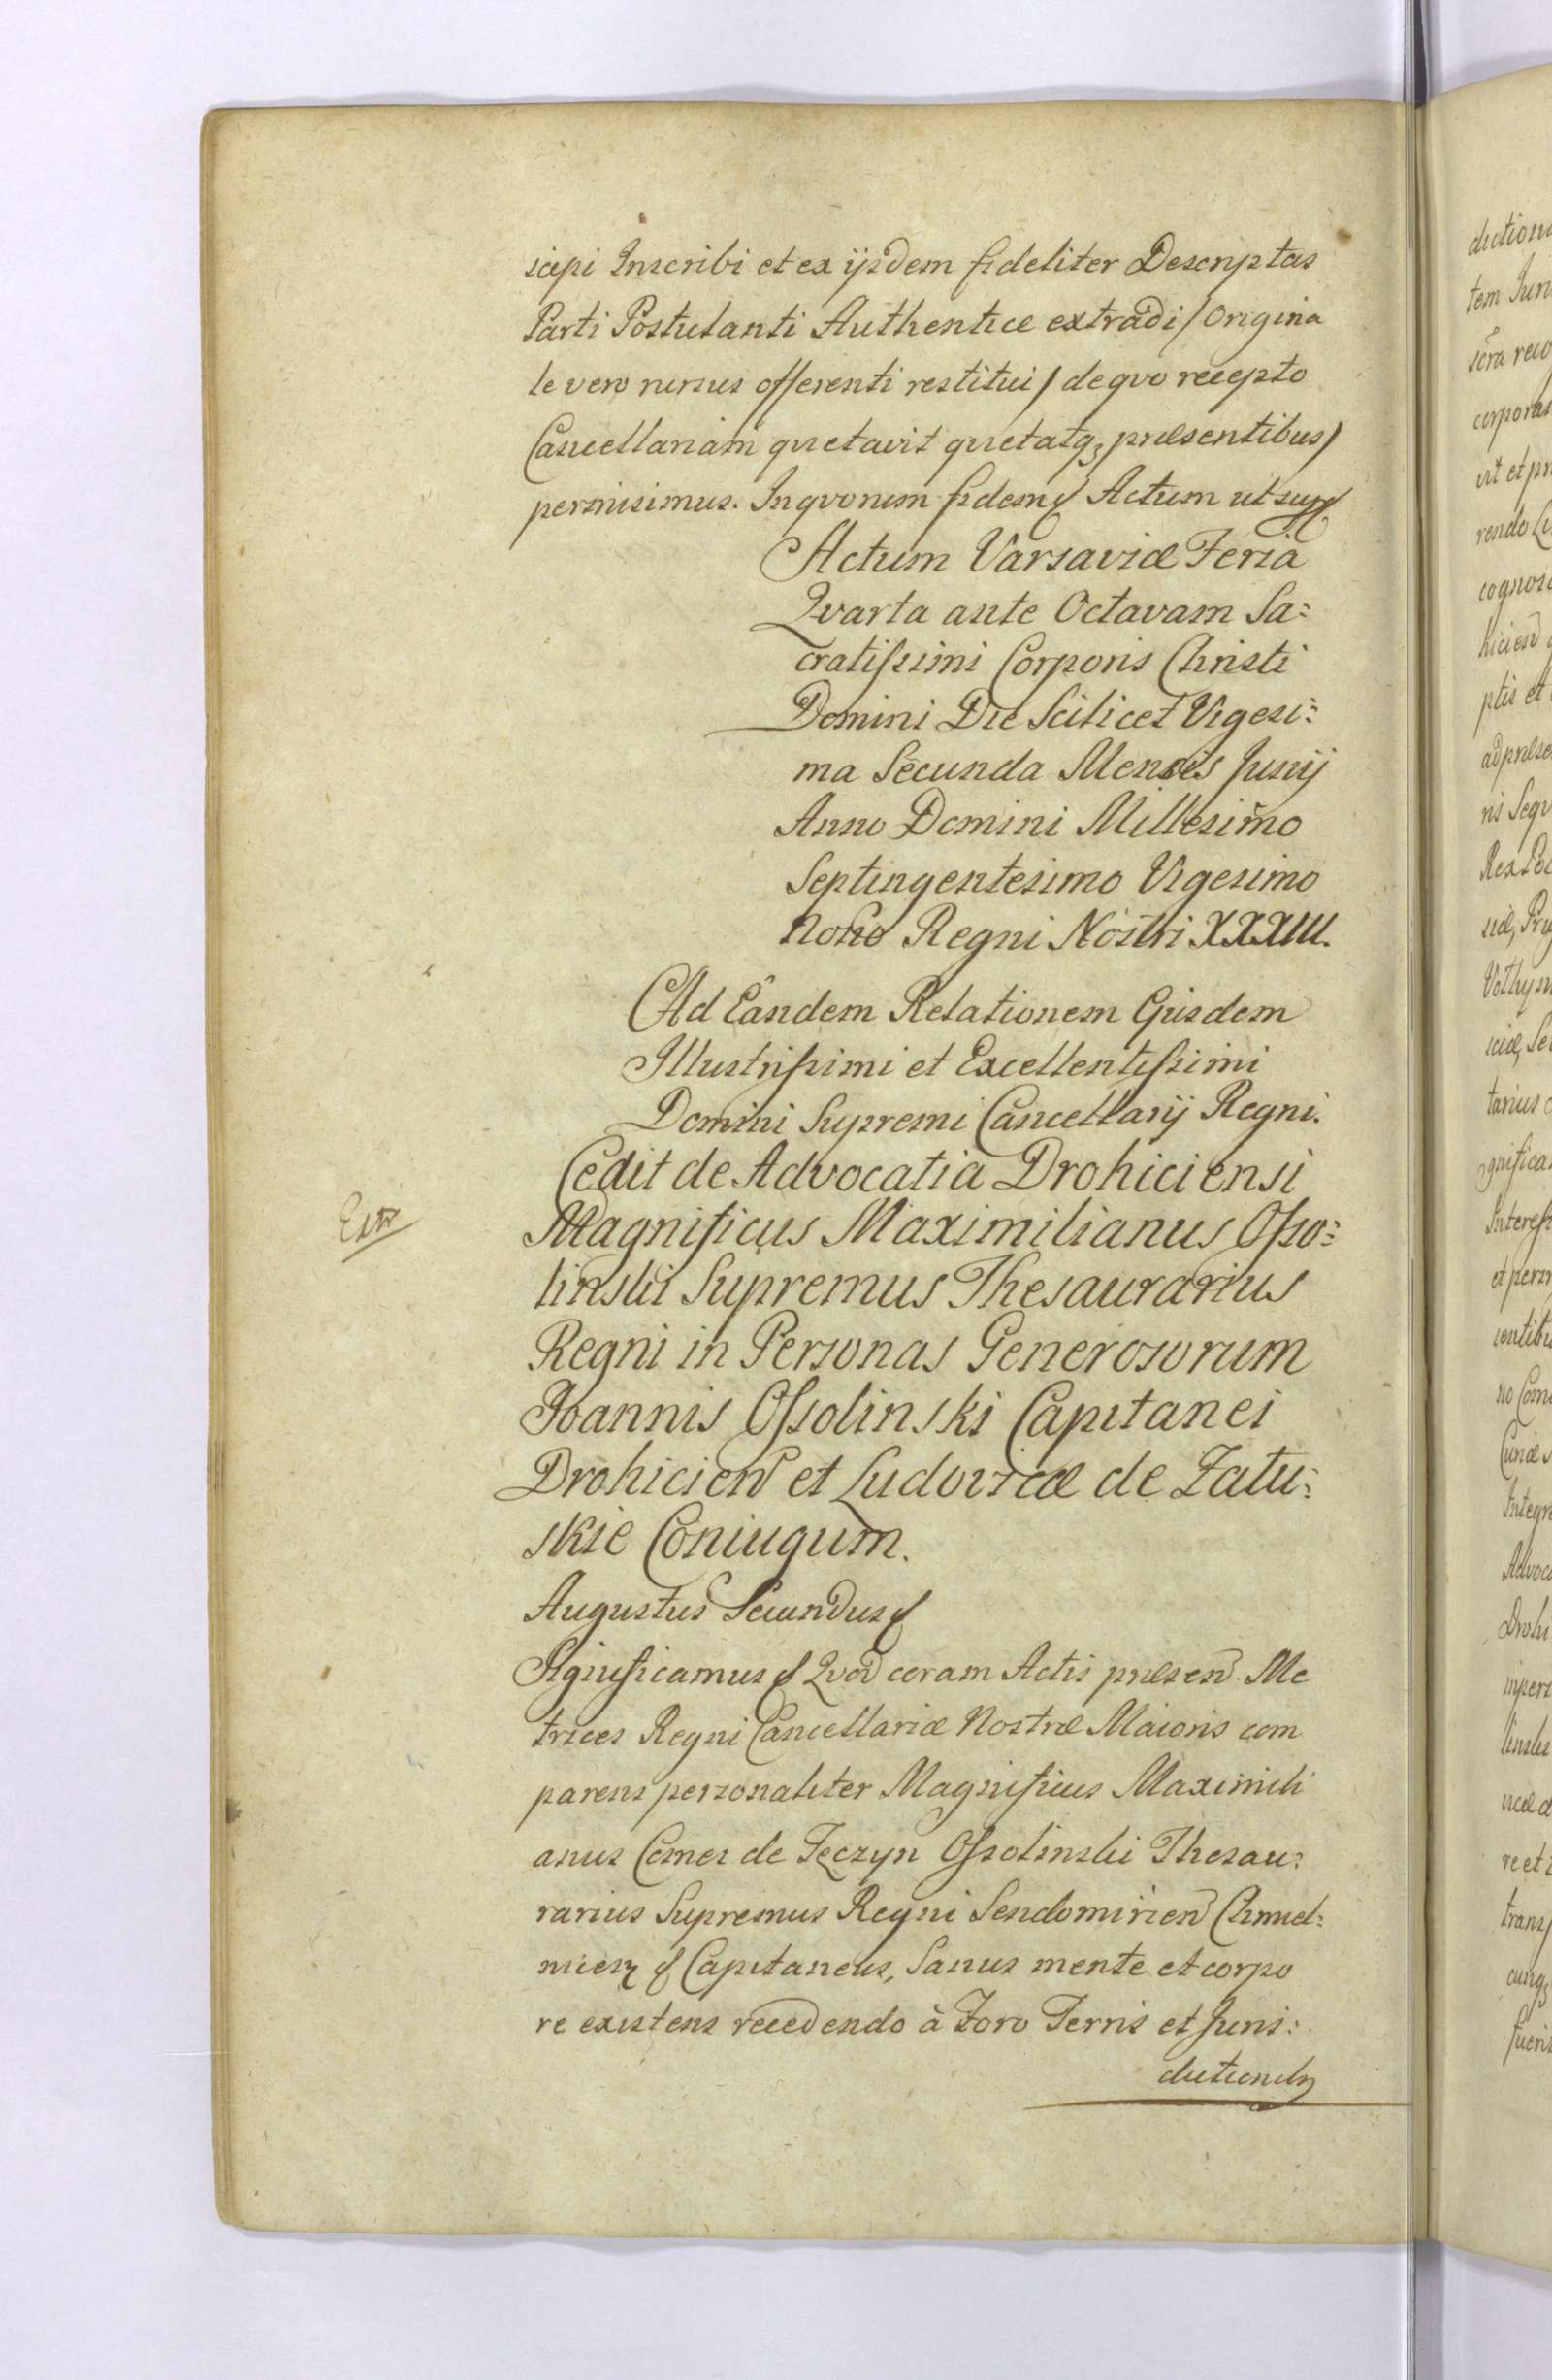 scipi Inscribi et ex ijsdem fideliter Descriptas
Parti Postulanti Authentice extradi / Origina
le vero rursus offerenti restitui / de qvo recepto
Cancellariam quietavit quietatq; præsentibus /
permisimus. In qvorum fidem Actum ut sup
Actum Varsaviæ Feria
Qvarta ante Octavam Sa:
cratissimi Corporis Christi
Domini Die Scilicet Vigesi:
ma Secunda Mensis Junij
Anno Domini Millesimo
Septingentesimo Vigesimo
Nono Regni Nostri XXXIII.
Ad Eandem Relationem Ejusdem
Illustrissimi et Excellentissimi
Domini Supremi Cancellarij Regni.
Cedit de Advocatia Drohiciensi
Magnificus Maximilianus Osso:
linski Supremus Thesaurarius
Regni in Personas Generosorum
Joannis Ossolinski Capitanei
Drohicien et Ludovicæ de Zalu:
skie Coniugum.
Augustus Secundus
Significamus Qvod coram Actis præsen. Me
trices Regni Cancellariæ Nostræ Maioris com
parens personaliter Magnificus Maximili
anus Comes de Teczyn Ossolinski Thesau:
rarius Supremus Regni Sendomirien Chmiel:
nicen Capitaneus, Sanus mente et corpo
re existens recedendo à Foro Terris et Juris:
dictionibq
dictiona
tem Juri
rendo
et perm